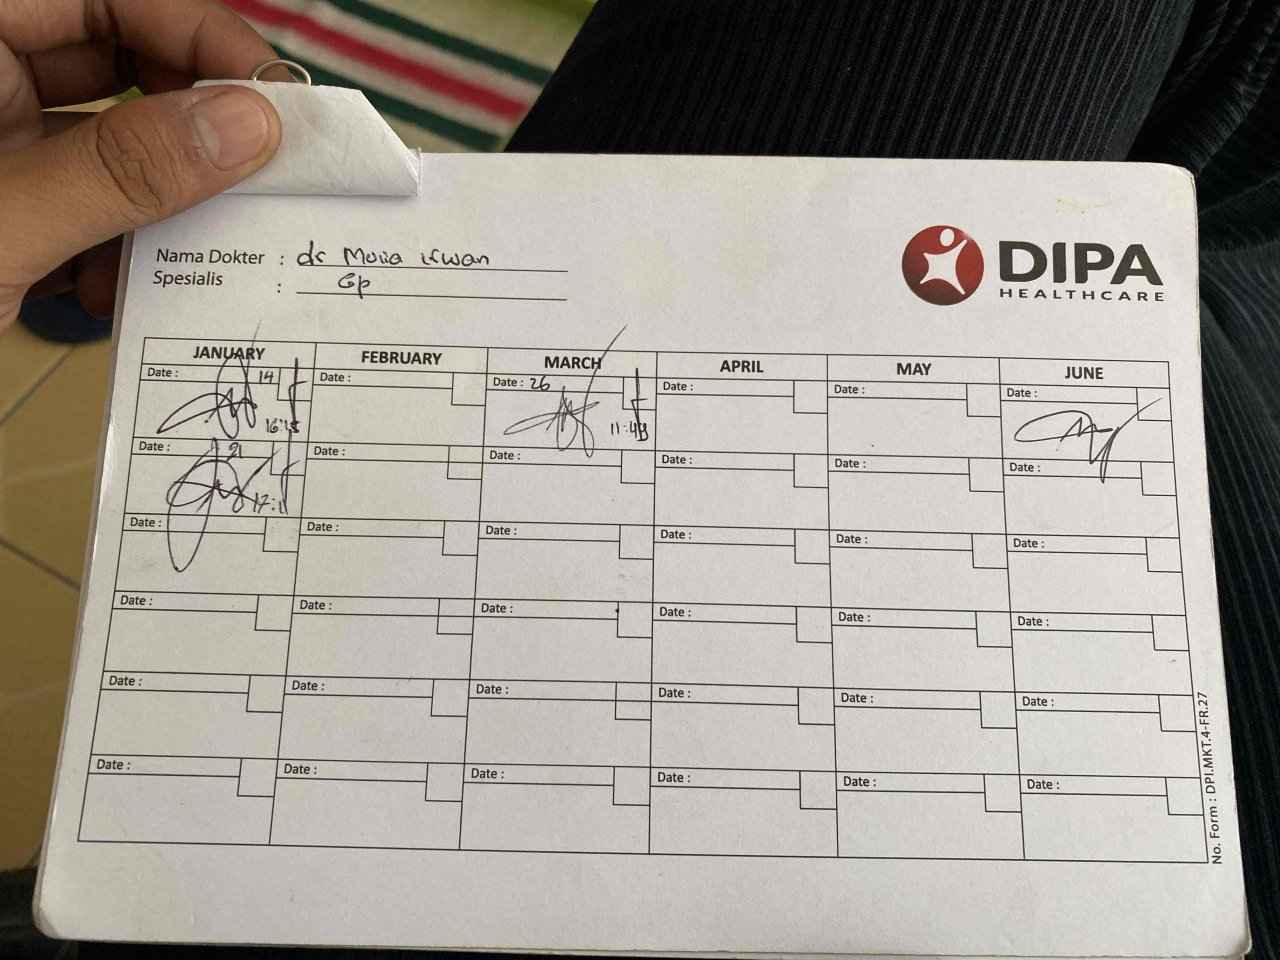 DIPA
HEALTHCARE
Nama Dokter : dr Mulia irwan
Spesialis : Gp
JANUARY FEBRUARY MARCH APRIL MAY JUNE
Date : 14 Date : Date : 26 Date : Date : Date :
16:15 11:49
Date : 21 Date : Date : Date : Date : Date :
Date : Date : Date : Date : Date : Date :
Date : Date : Date : Date : Date : Date :
Date : Date : Date : Date : Date : Date :
Date : Date : Date : Date : Date : Date :
No. Form : DPI.MKT.4-FR.27